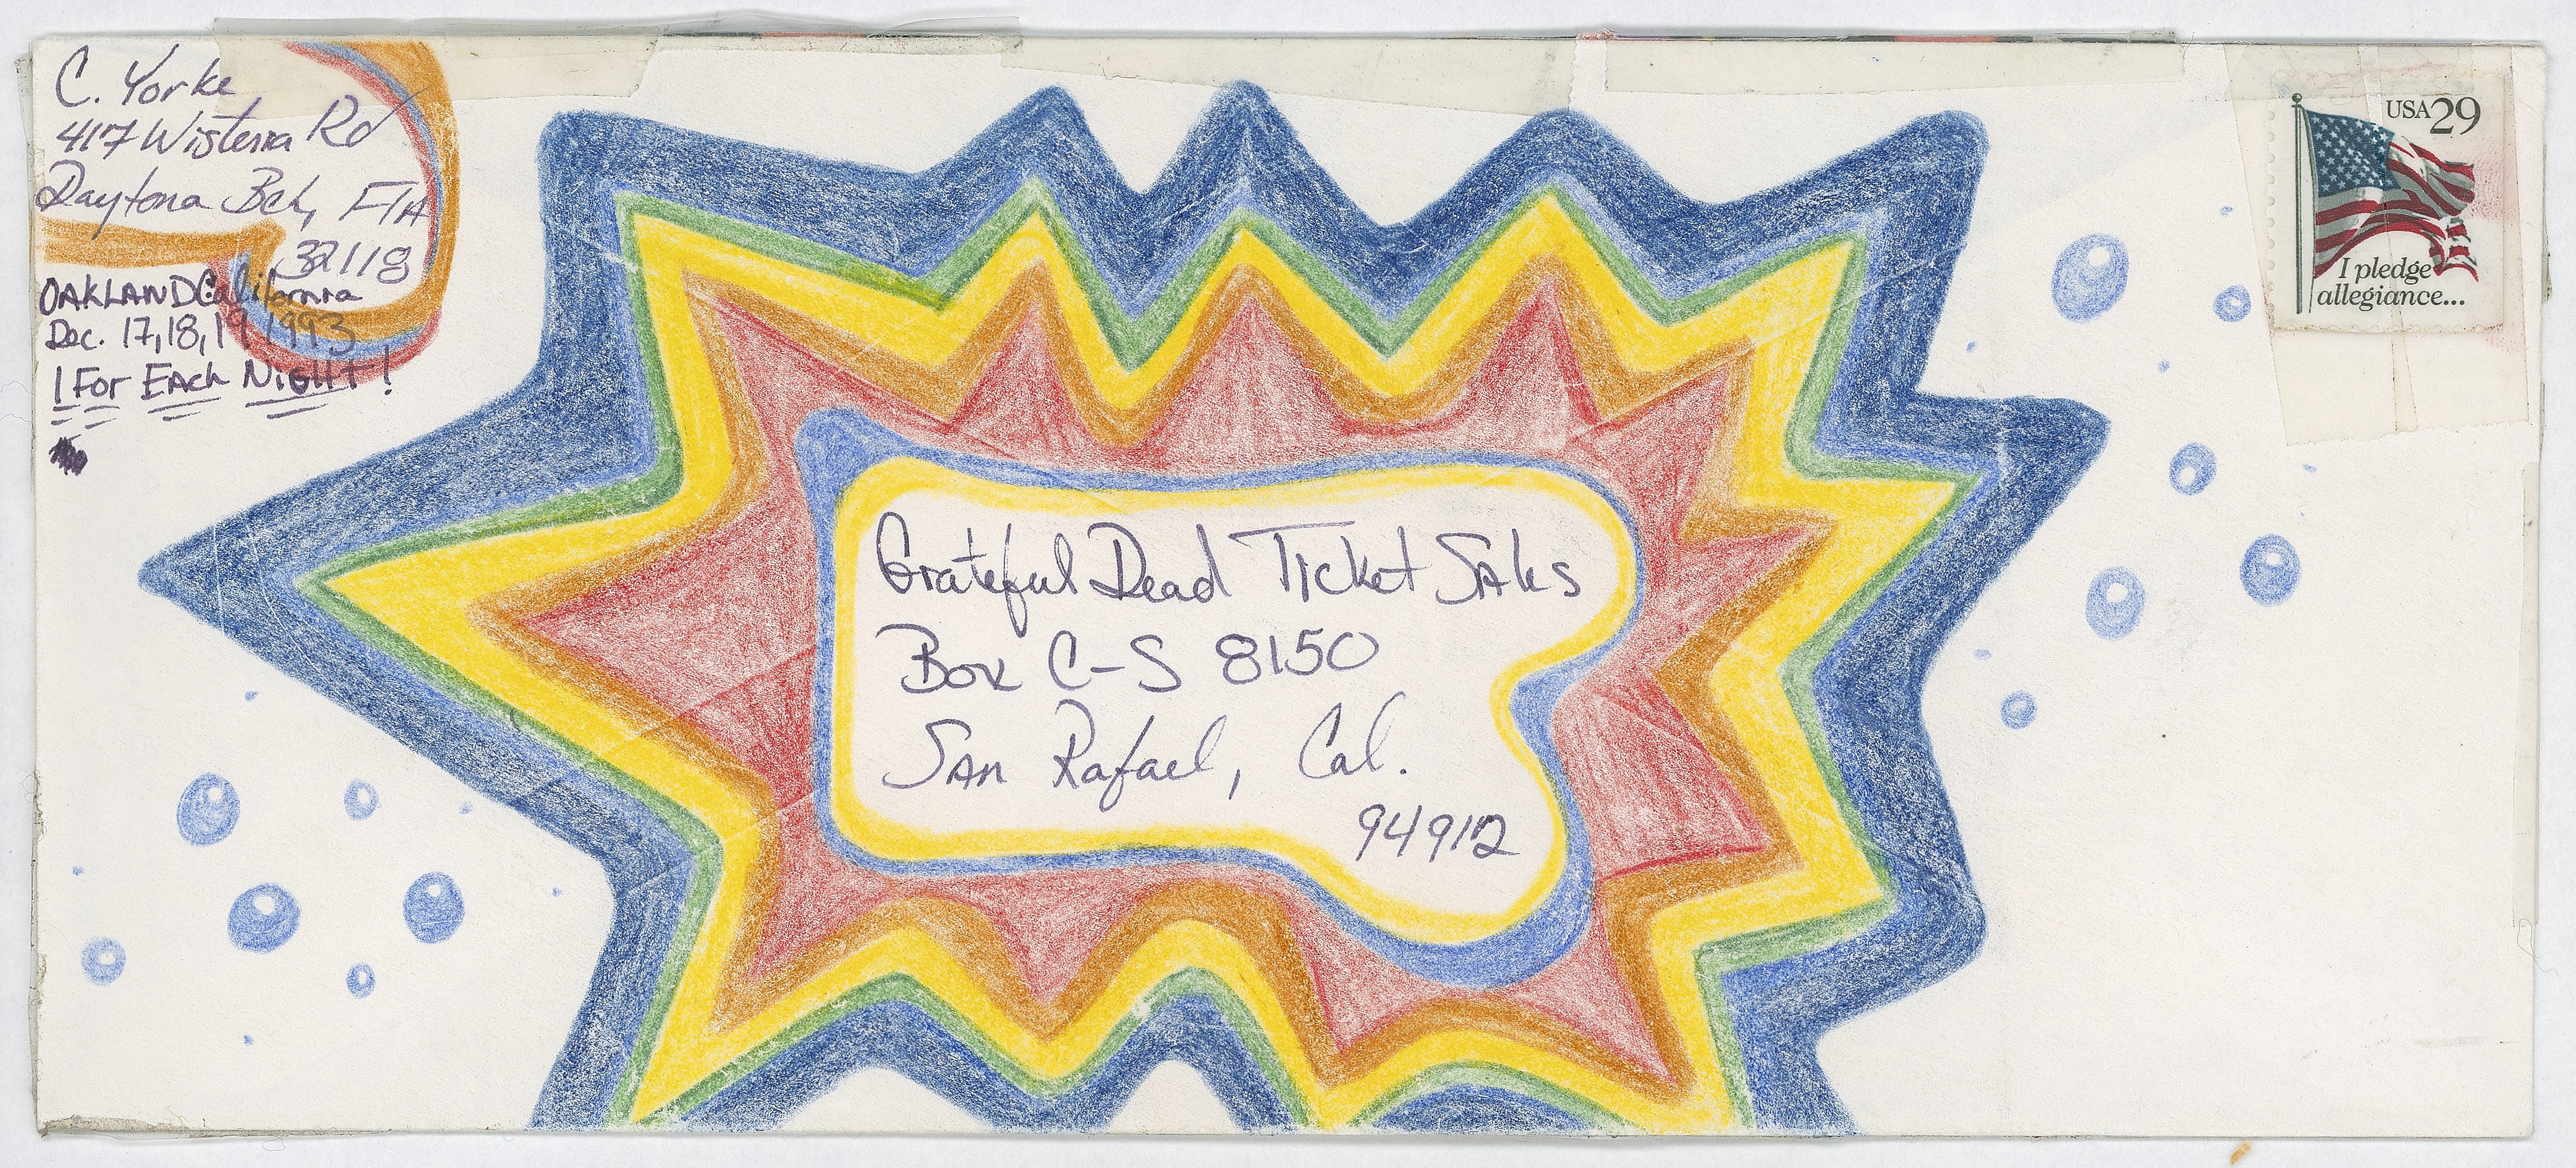 C. Yorke
417 Wisteria Rd
Daytona Bch, FlA
32118
OAKLAND California
Dec. 17, 18, 19 1993
1 For EAch NIGHT!
Grateful Dead Ticket SAles
Box C-S 8150
SAn Rafael, Cal.
94912
USA 29
I pledge
allegiance...